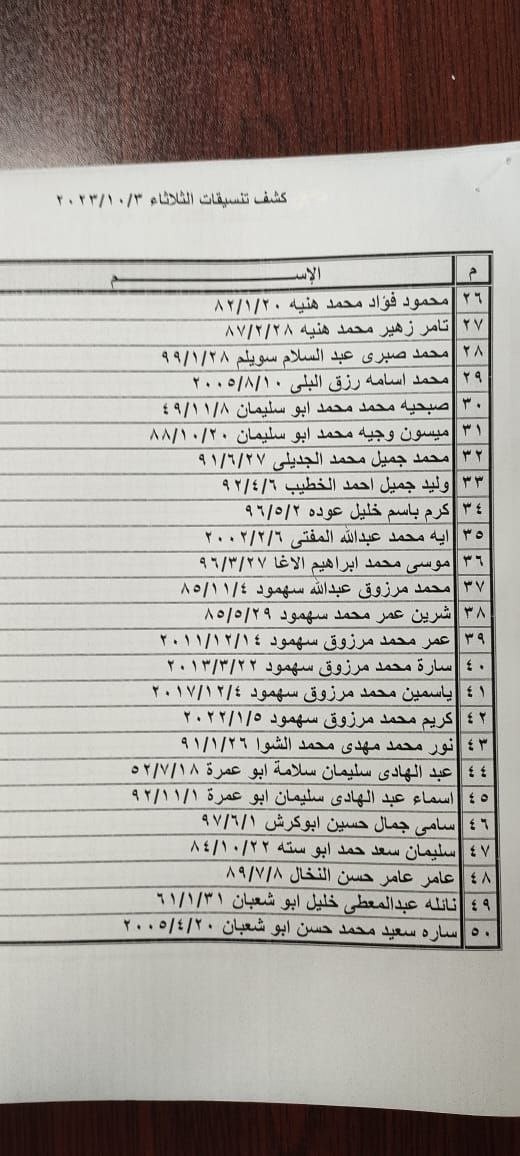 كشف تنسيقات الثلاثاء ٢٠٢٣/١٠/٣
م الإســـــــم
٢٦ محمود فؤاد محمد هنيه ٨٢/١/٢٠
٢٧ تامر زهير محمد هنيه ٨٧/٢/٢٨
٢٨ محمد صبرى عبد السلام سويلم ٩٩/١/٢٨
٢٩ محمد اسامه رزق البلى ٢٠٠٥/٨/١٠
٣٠ صبحيه محمد محمد ابو سليمان ٤٩/١١/٨
٣١ ميسون وجيه محمد ابو سليمان ٨٨/١٠/٢٠
٣٢ محمد جميل محمد الجديلى ٩١/٦/٢٧
٣٣ وليد جميل احمد الخطيب ٩٢/٤/٦
٣٤ كرم باسم خليل عوده ٩٦/٥/٢
٣٥ ايه محمد عبدالله المفتى ٢٠٠٢/٢/٦
٣٦ موسى محمد ابراهيم الاغا ٩٦/٣/٢٧
٣٧ محمد مرزوق عبدالله سهمود ٨٥/١١/٤
٣٨ شرين عمر محمد سهمود ٨٥/٥/٢٩
٣٩ عمر محمد مرزوق سهمود ٢٠١١/١٢/١٤
٤٠ سارة محمد مرزوق سهمود ٢٠١٣/٣/٢٢
٤١ ياسمين محمد مرزوق سهمود ٢٠١٧/١٢/٤
٤٢ كريم محمد مرزوق سهمود ٢٠٢٢/١/٥
٤٣ نور محمد مهدى محمد الشوا ٩١/١/٢٦
٤٤ عبد الهادى سليمان سلامة ابو عمرة ٥٢/٧/١٨
٤٥ اسماء عبد الهادى سليمان ابو عمرة ٩٢/١١/١
٤٦ سامى جمال حسين ابوكرش ٩٧/٦/١
٤٧ سليمان سعد حمد ابو سته ٨٤/١٠/٢٢
٤٨ عامر عامر حسن النخال ٨٩/٧/٨
٤٩ نائله عبدالمعطى خليل ابو شعبان ٦١/١/٣١
٥٠ ساره سعيد محمد حسن ابو شعبان ٢٠٠٥/٤/٢٠